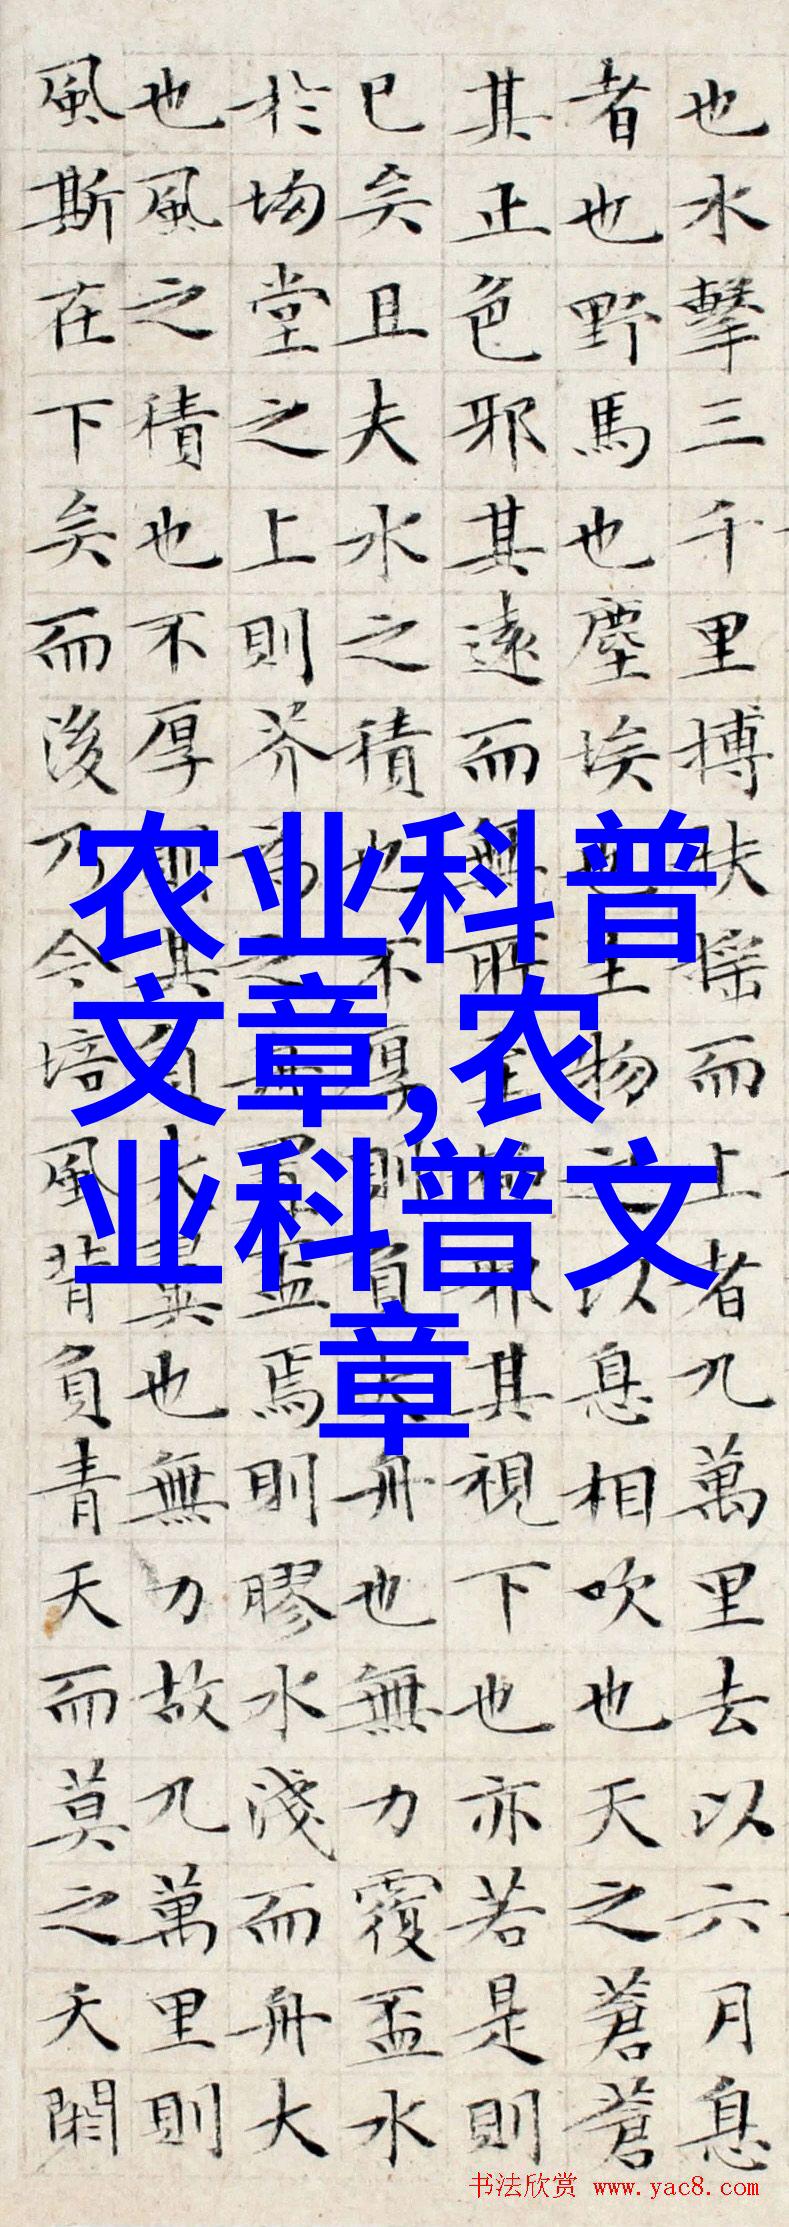 也水擊三千里搏扶摇而上者九萬里去以六月息
者也野馬也塵埃也生物之以息相吹也天之蒼蒼
其正色邪其遠而無所至極邪其視下也亦若是則
已矣且夫水之積也不厚則負大舟也無力覆盃水
於坳堂之上則芥為之舟置盃焉則膠水淺而舟大
也風之積也不厚則其負大翼也無力故九萬里則
風斯在下矣而後乃今培風背負青天而莫之夭閼
农业科普
文章,农
业科普文
章
书法欣赏 www.yac8.com